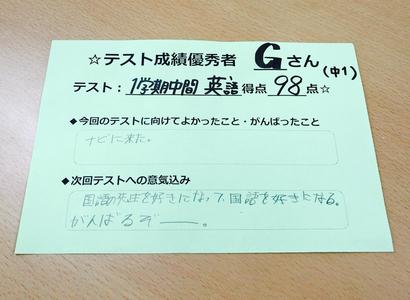 ☆テスト成績優秀者 Gさん
(中1)
テスト：1学期中間 英語 得点 98 点☆
◆今回のテストに向けてよかったこと・がんばったこと
ナビに来た。
◆次回テストへの意気込み
国語の先生を好きになって、国語を好きになる。
がんばるぞー。